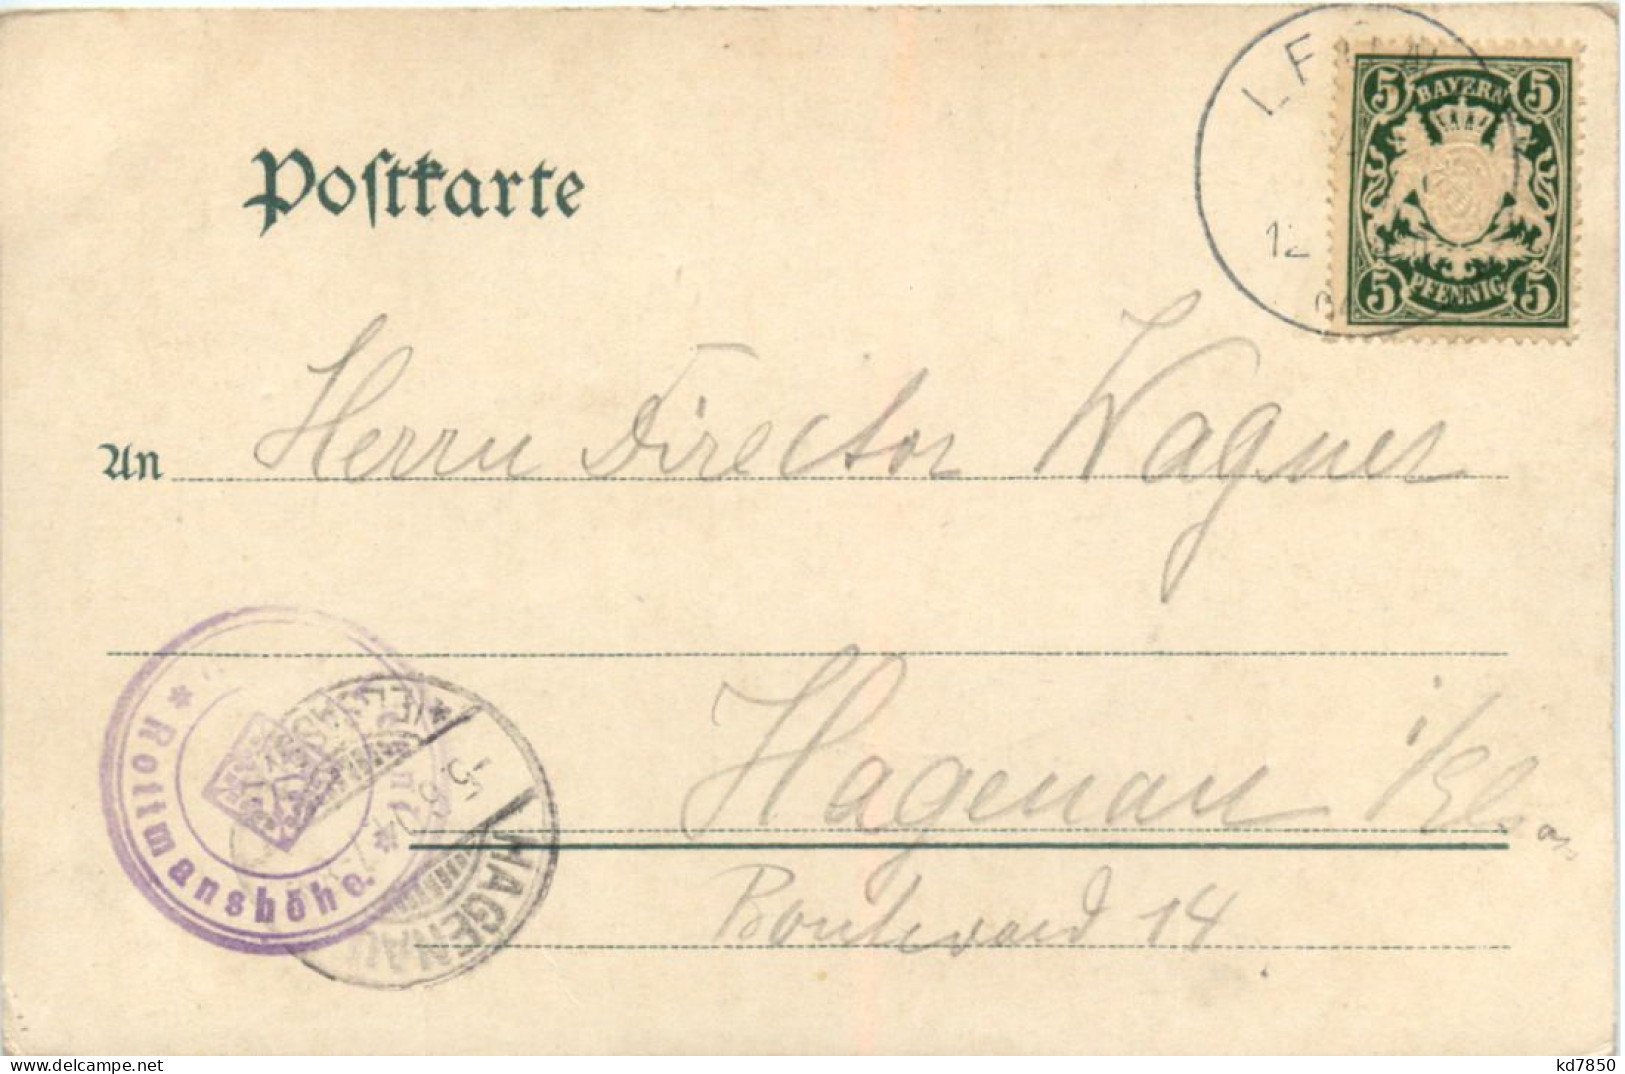 BAYERN
5 5
PFENNIG
5 5
12
Postkarte
An Herrn Director Wagner
Hagenau i/Elsass
Boulevard 14
* Rottmanshöhe. *
HAGENAU
* (ELSASS)
kd7850